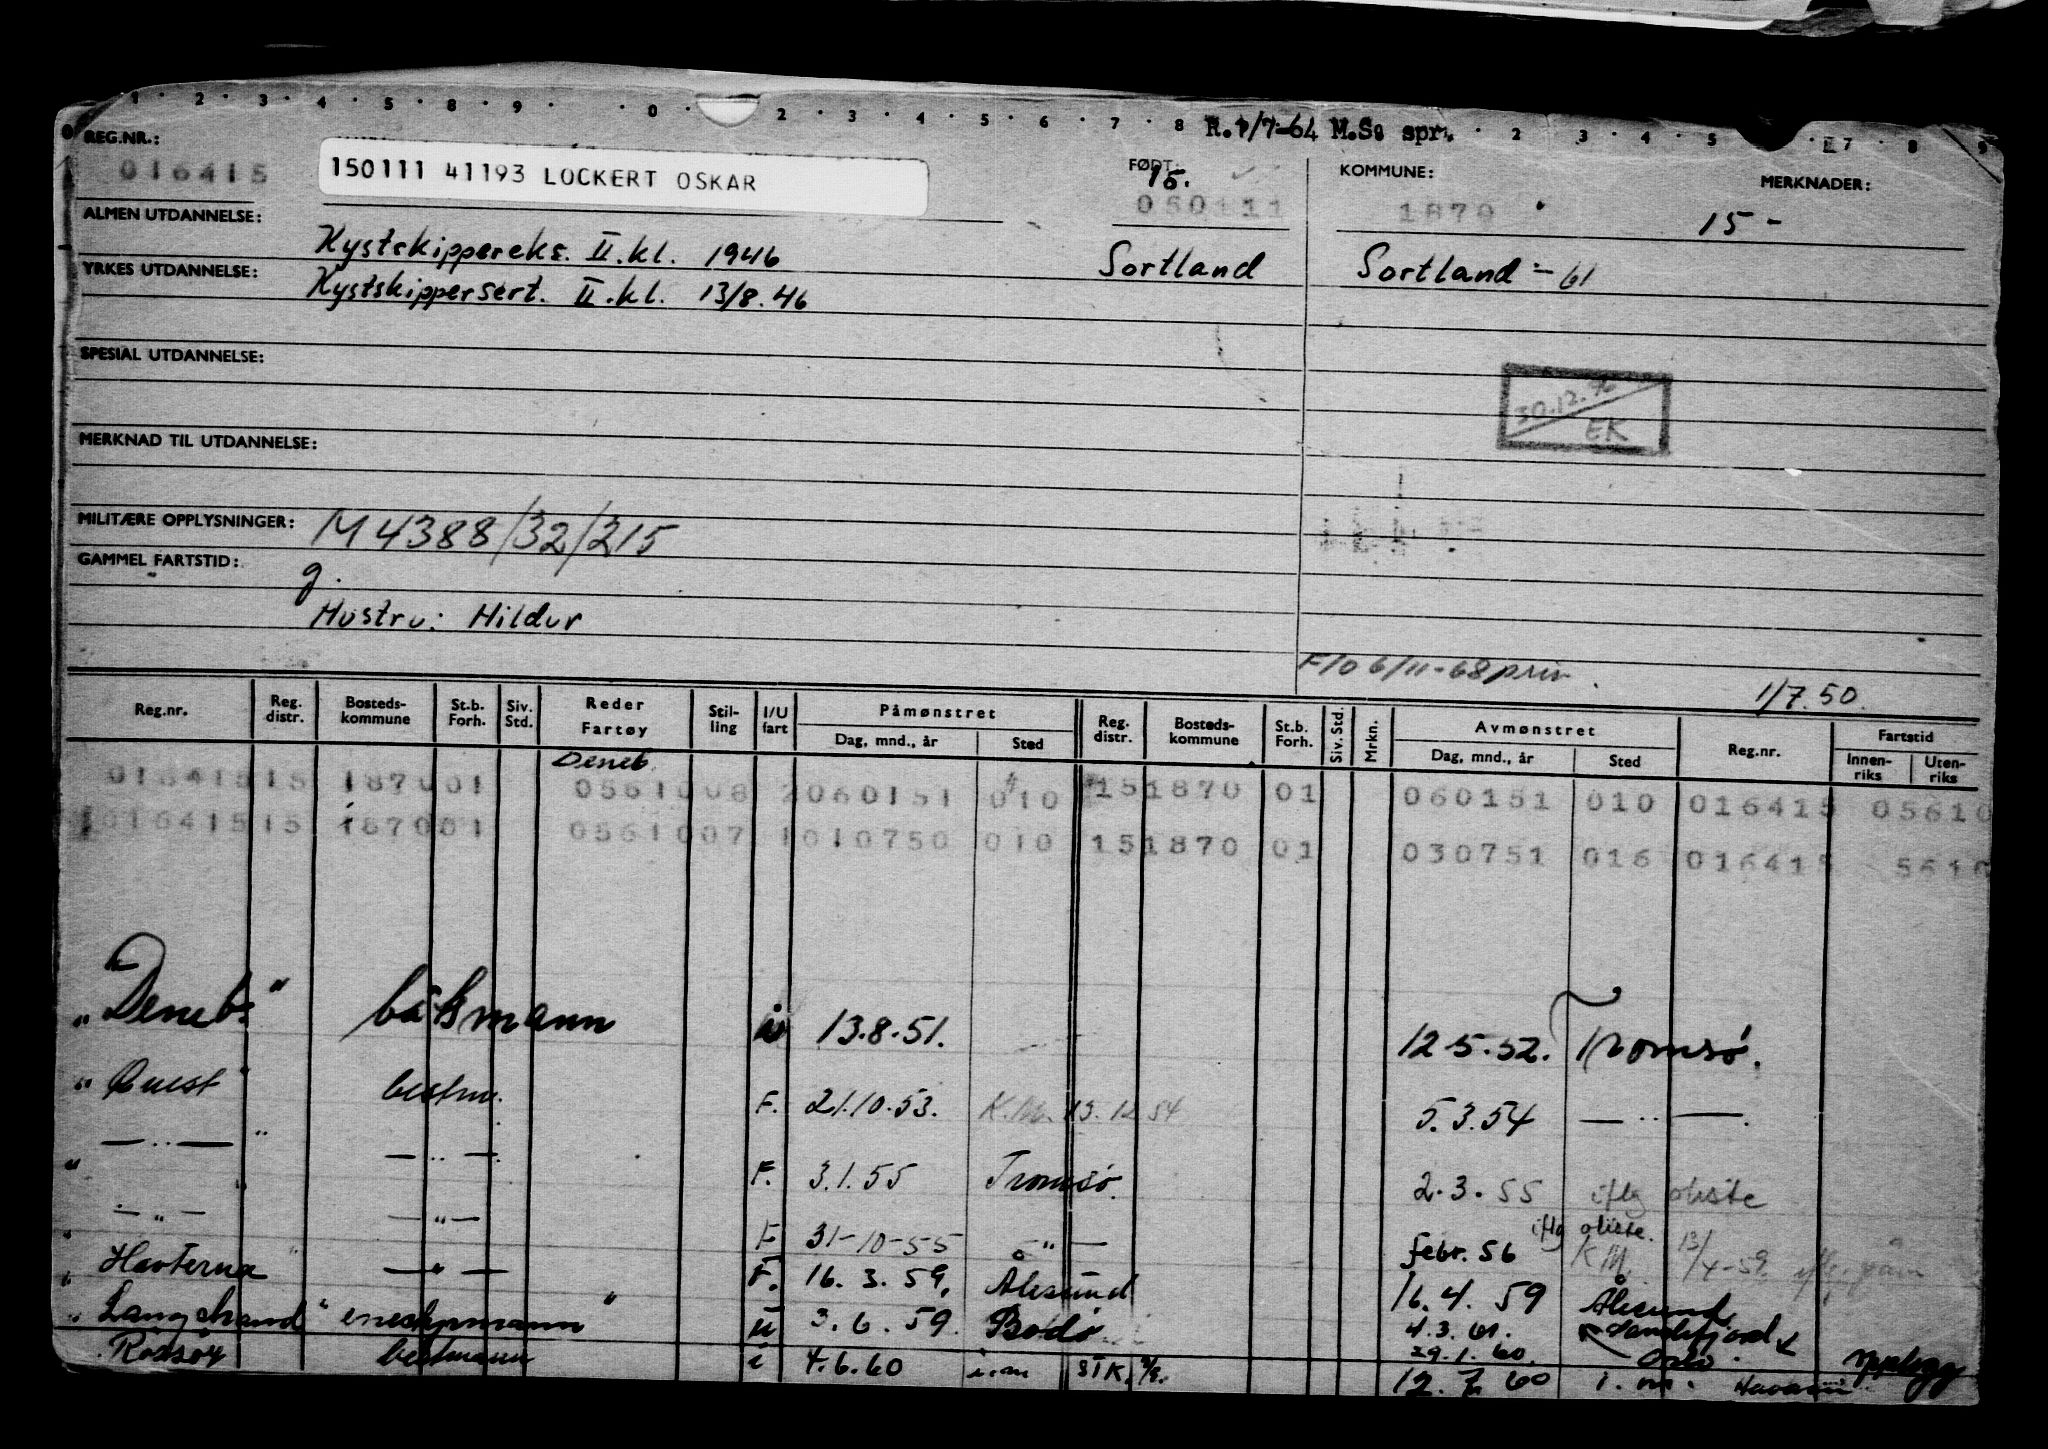 1 2 3 4 5 8 9 0 2 3 4 5 6 7 8 R. 1/7-64 M.S. spr. 2 3 4 5 7 8 9
REG.NR.: 016415
150111 41193 LOCKERT OSKAR
FØDT: 15. 050111
KOMMUNE: 1870
MERKNADER: 15 -
ALMEN UTDANNELSE: Kystskippereks. II.kl. 1946
Sortland
Sortland - 61
YRKES UTDANNELSE: Kystskippersert. II.kl. 13/8.46
SPESIAL UTDANNELSE:
30.12.76
EK
MERKNAD TIL UTDANNELSE:
MILITÆRE OPPLYSNINGER: M 4388/32/215
GAMMEL FARTSTID: g.
Hustru: Hildur
F/O 6/11-68 priv
1/7.50.
Reg.nr. Reg. distr. Bosteds-kommune St.b. Forh. Siv. Std. Reder Fartøy Stil-ling I/U fart Påmønstret Dag, mnd., år Sted Reg. distr. Bosteds-kommune St.b. Forh. Siv. Std. Mrkn. Avmønstret Dag, mnd., år Sted Reg.nr. Fartstid Innen-riks Uten-riks
Deneb
016415 15 187001 0561008 2060151 010 151870 01 060151 010 016415 05610
016415 15 187001 0561007 1010750 010 151870 01 030751 016 016415 5610
"Deneb" båtsmann i 13.8.51. 12.5.52. Tromsø.
"Quest" bestm. F. 21.10.53. K.M. 13.12.54 5.3.54 — " —
" — " — " — " — F. 3.1.55 Tromsø. 2.3.55 iflg oliste
" — " — — " — F 31-10-55 — " — febr. 56 iflg oliste. K.M. 13/4-59
" Havterna " — " — F. 16.3.59. Ålesund 16.4.59 Ålesund
" Langstrand " eneskymann " u 3.6.59. Bodø 4.3.61. Sandefjord
29.1.60. Oslo. opplegg
Rossøy bestmann i 4.6.60 i.m STK. 12.7.60 i.m. Havari